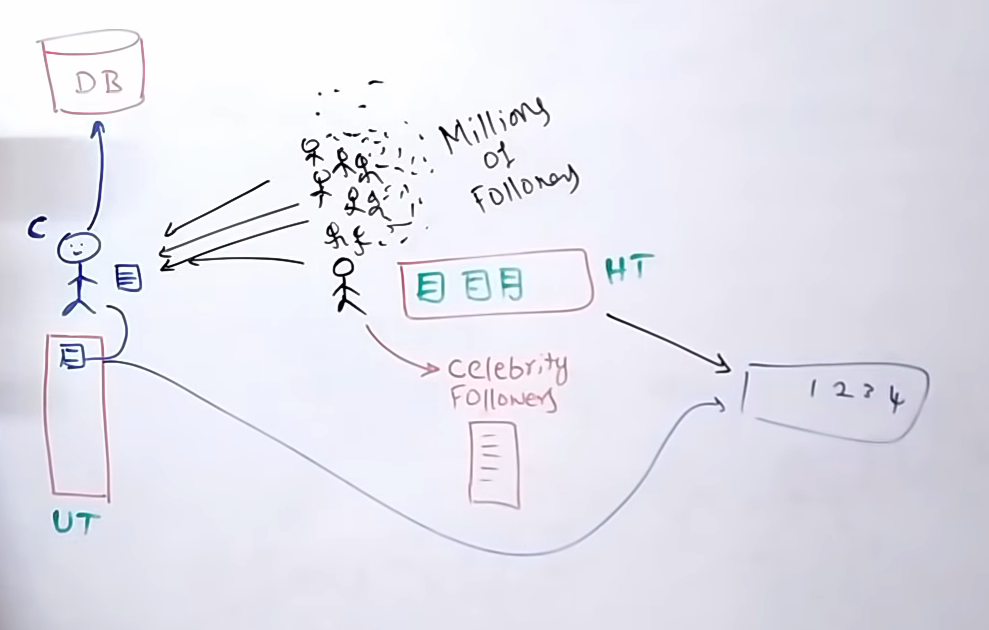 DB
Millions
of
Followers
C
HT
celebrity
Followers
1 2 3 4
UT